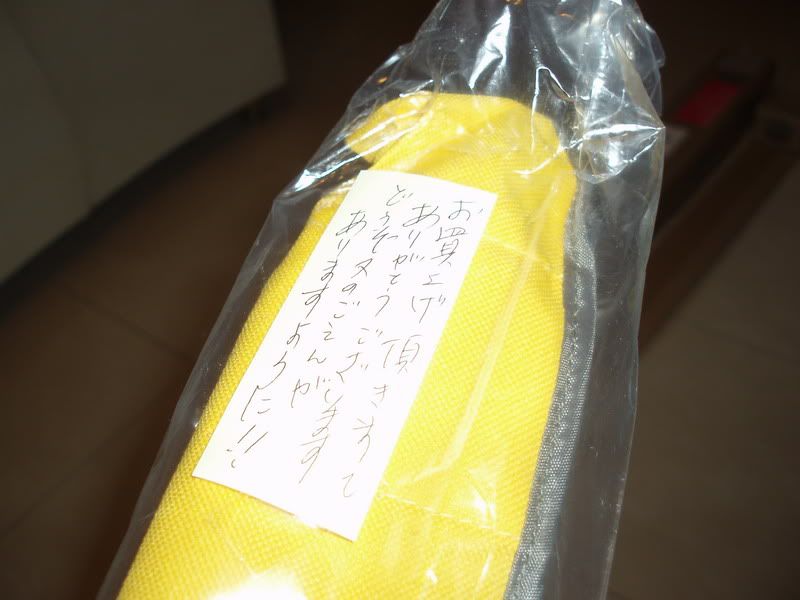 お買上げ頂きまして
ありがとうございます
どうぞ又のごえんが
ありますように!!